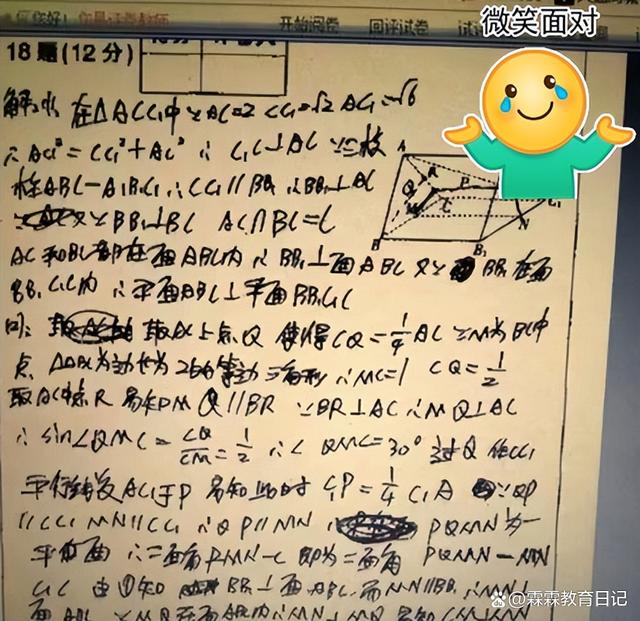 您好!
开始阅卷 回评试卷
微笑面对
18题(12分)
解: 在△ACC₁中 ∵AC=2 CC₁=√2 AC₁=√6
∴AC₁²=CC₁²+AC² ∴C₁C⊥AC ∵三棱
柱ABC-A₁B₁C₁ ∴CC₁∥BB₁ ∴BB₁⊥AC
又∵BB₁⊥BC AC∩BC=C
AC和BC都在面ABC内 ∴BB₁⊥面ABC 又∵BB₁在面
BB₁C₁C内 ∴平面ABC⊥平面BB₁C₁C
取AC上点Q 使得CQ=1/4AC ∵M为BC中
点 △ABC为边长为2的等边三角形 ∴MC=1 CQ=1/2
取AC中点R 易知MQ∥BR ∵BR⊥AC ∴MQ⊥AC
∴sin∠QMC=CQ/CM=1/2 ∴∠QMC=30° 过Q作CC₁
平行线交AC₁于P 易知此时C₁P=1/4C₁A ∵QP
∥CC₁ MN∥CC₁ ∴QP∥MN PQMN为一
平面 ∴二面角PMN-C即为二面角PQMN-MN
C₁C 由①知 BB₁⊥面ABC 而MN∥BB₁ ∴MN⊥
面ABC
A
Q
R
P
M
C
B
B₁
C₁
N
霖霖教育日记